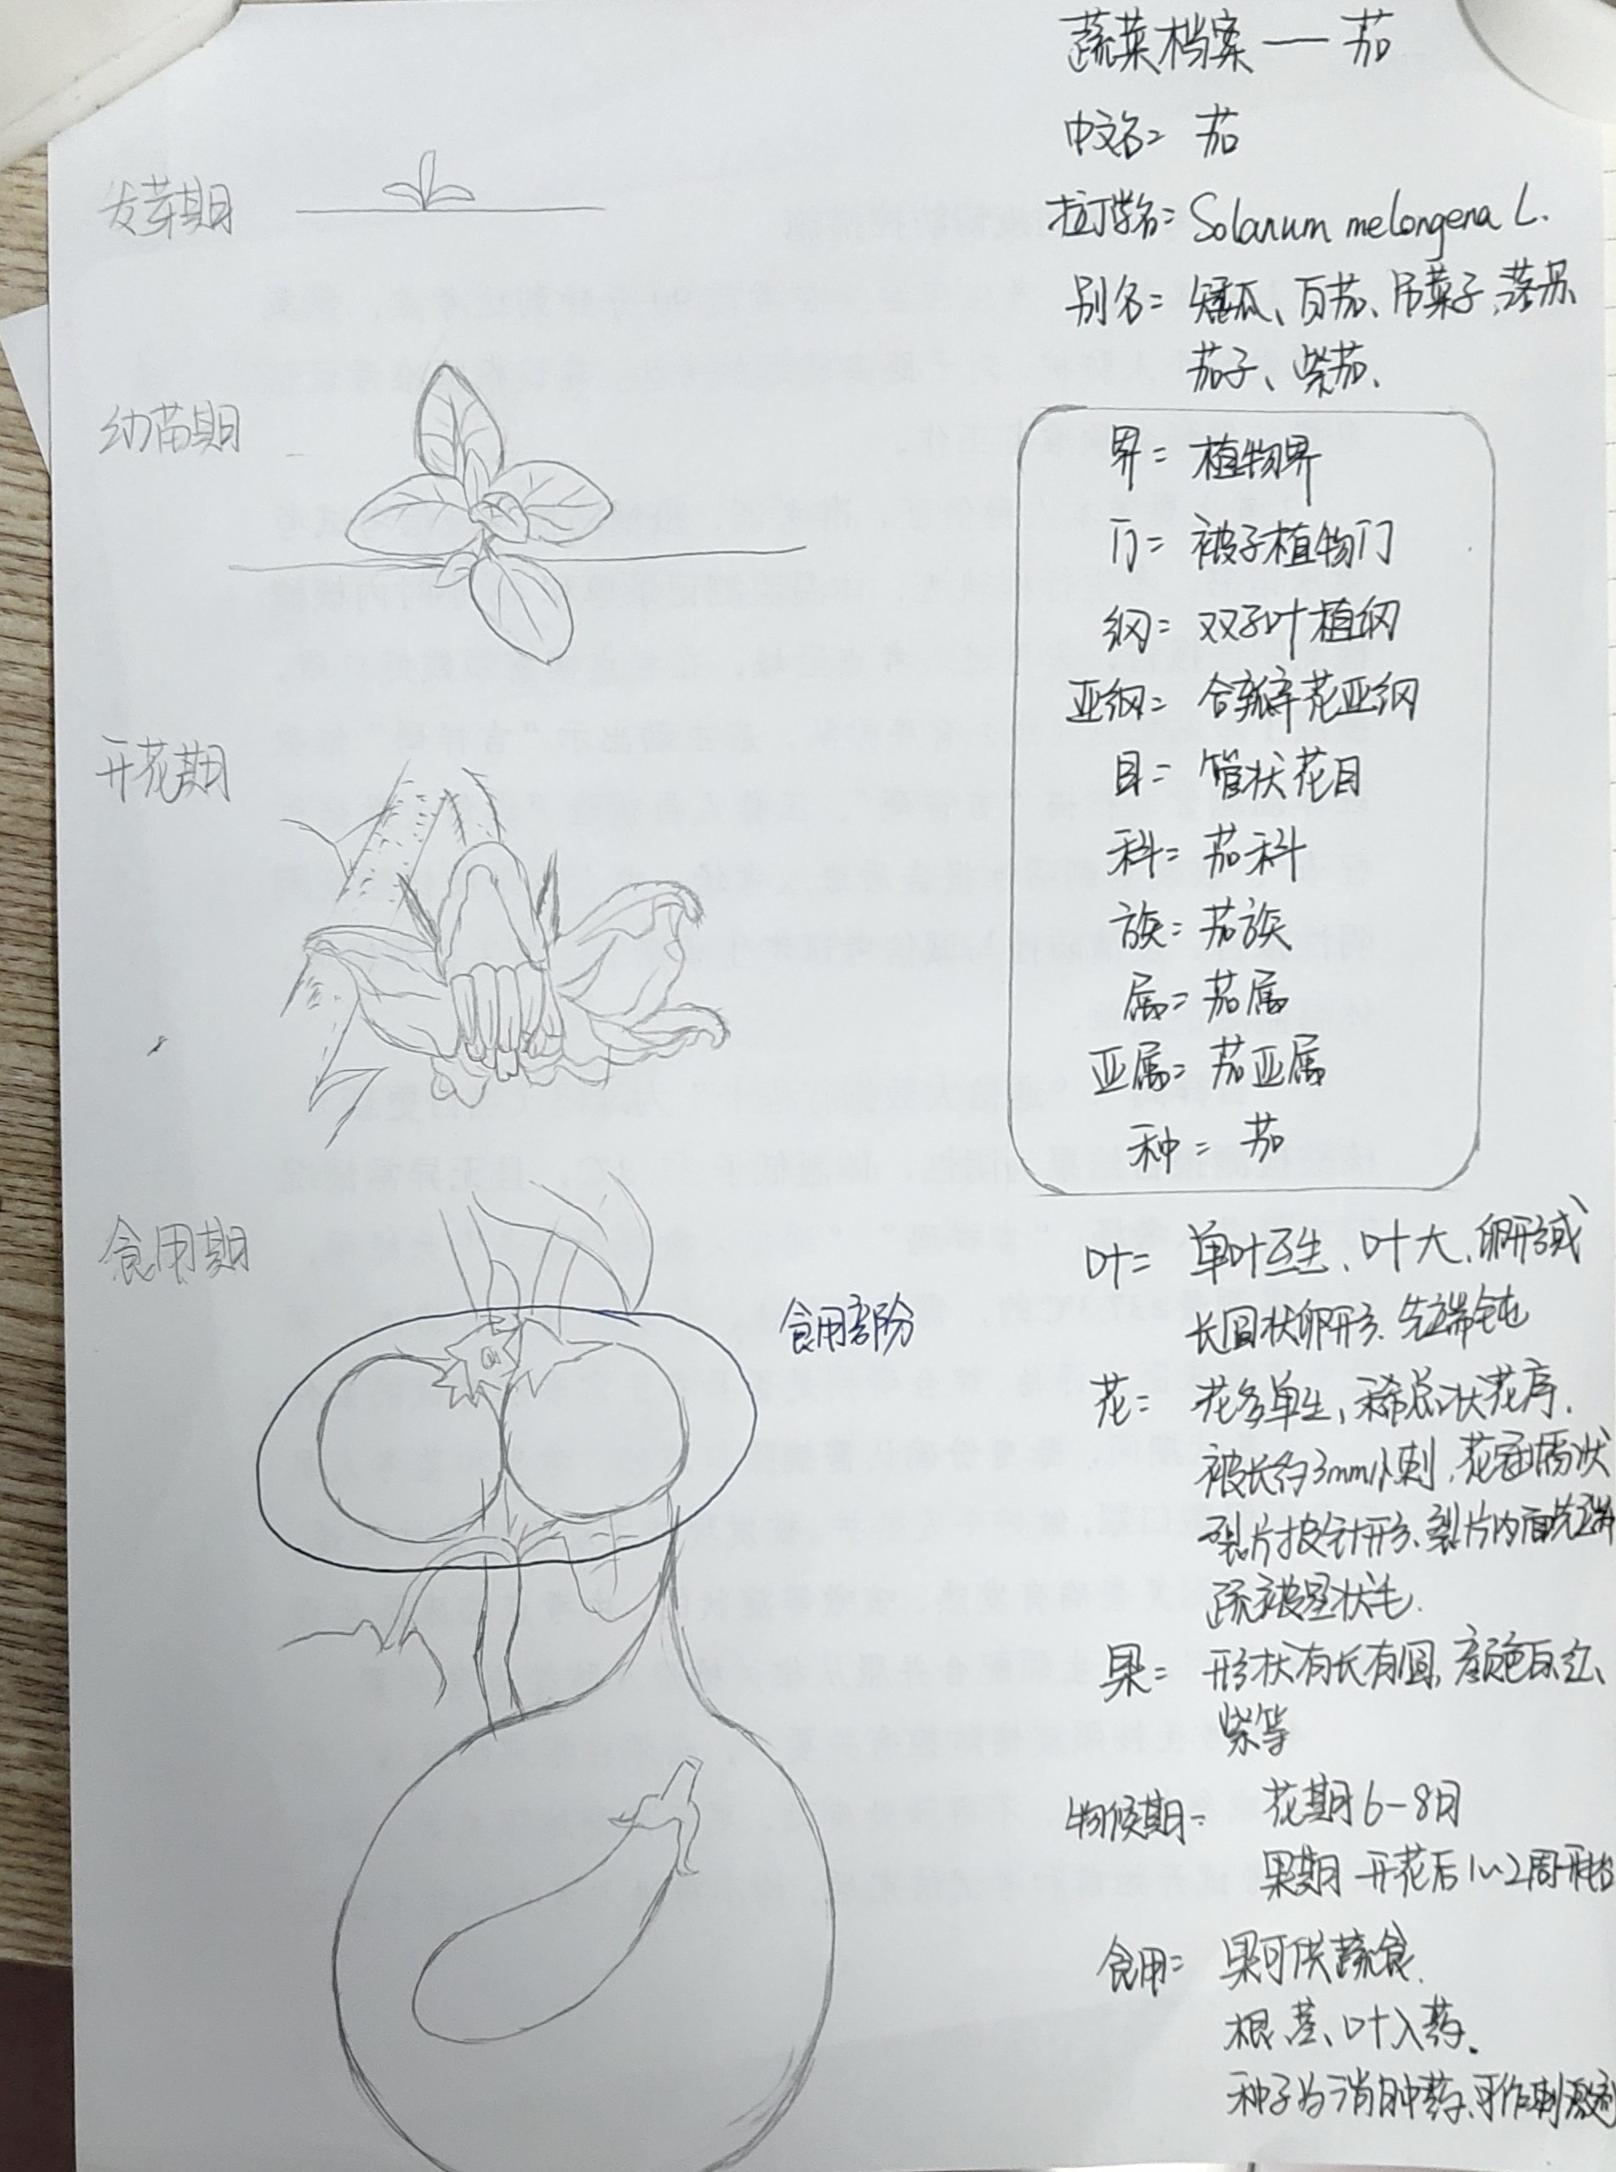 蔬菜档案——茄
中文名: 茄
拉丁学名: Solanum melongena L.
别名: 矮瓜、白茄、吊菜子、落苏
茄子、紫茄、
界: 植物界
门: 被子植物门
纲: 双子叶植纲
亚纲: 合瓣花亚纲
目: 管状花目
科: 茄科
族: 茄族
属: 茄属
亚属: 茄亚属
种: 茄
叶: 单叶互生、叶大、卵形或
长圆状卵形、先端钝
花: 花多单生,稀总状花序.
被长约3mm小刺,花冠辐状
裂片披针形、裂片内面先端
疏被星状毛.
果: 形状有长有圆,颜色白、红、
紫等
物候期: 花期6-8月
果期 开花后1~2周开始
食用: 果可供蔬食.
根、茎、叶入药.
种子为消肿药、可作刺激剂
发芽期
幼苗期
开花期
食用期
食用部分